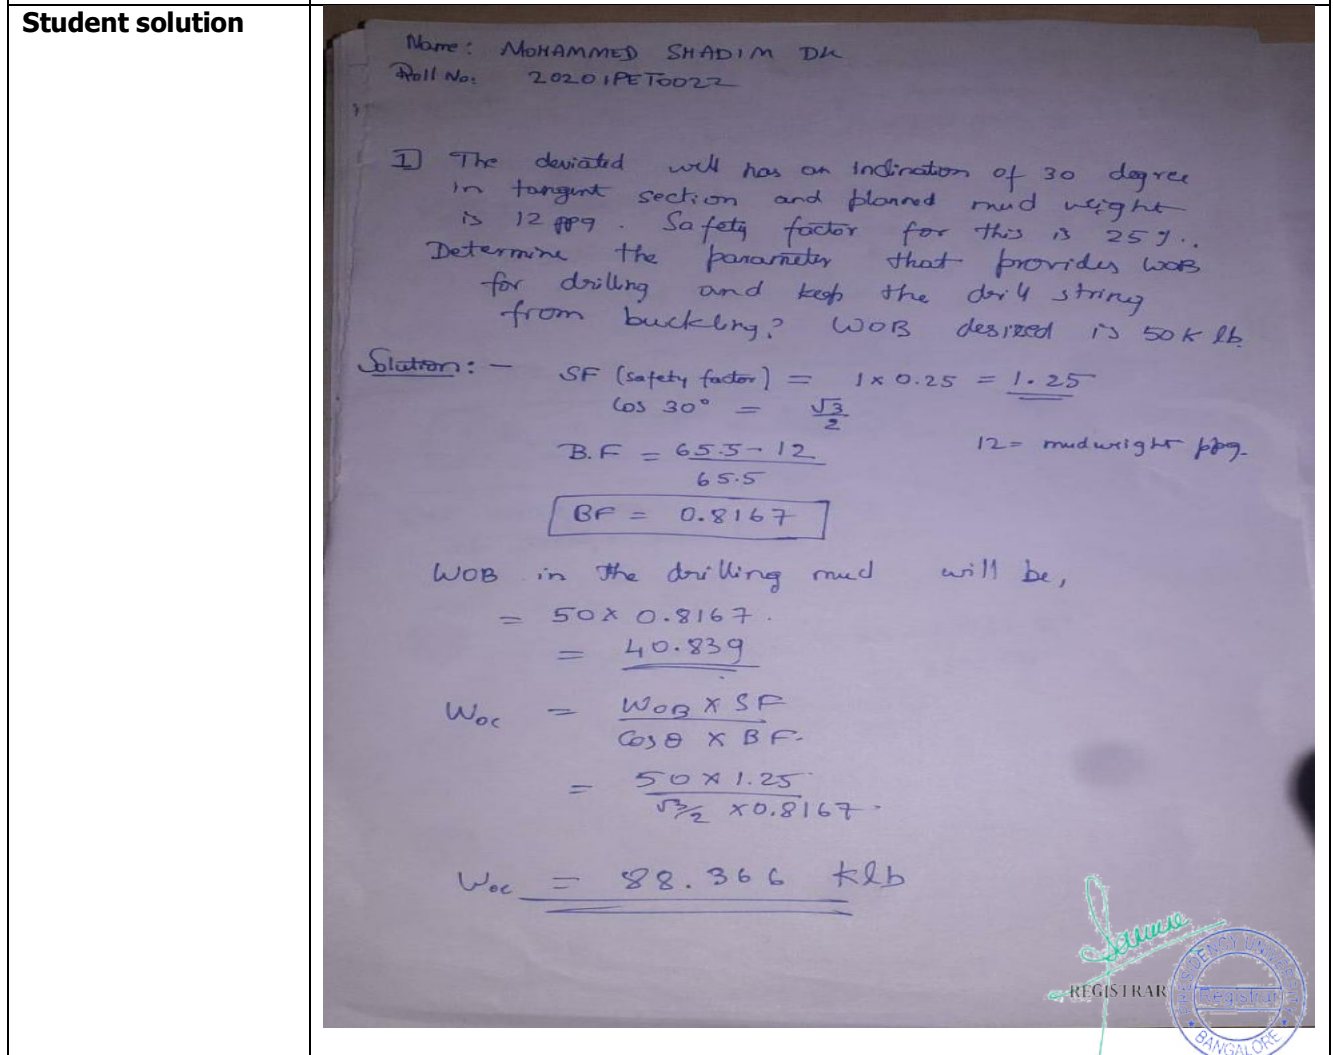 Student solution
Name: MOHAMMED SHADIM DK
Roll No: 20201PET0022
1] The deviated well has an Inclination of 30 degree
in tangent section and planned mud weight
is 12 ppg. Safety factor for this is 25%.
Determine the parameter that provides WOB
for drilling and keep the drill string
from buckling? WOB desired is 50K lb.
Solution: -
SF (safety factor) = 1 x 0.25 = 1.25
Cos 30° = √3/2
B.F = 65.5 - 12 / 65.5
12 = mud weight ppg.
BF = 0.8167
WOB in the drilling mud will be,
= 50 x 0.8167.
= 40.839
Woc = WOB x SF / Cos θ x BF.
= 50 x 1.25 / √3/2 x 0.8167.
Woc = 88.366 klb
REGISTRAR
PRESIDENCY UNIVERSITY
Registrar
BANGALORE